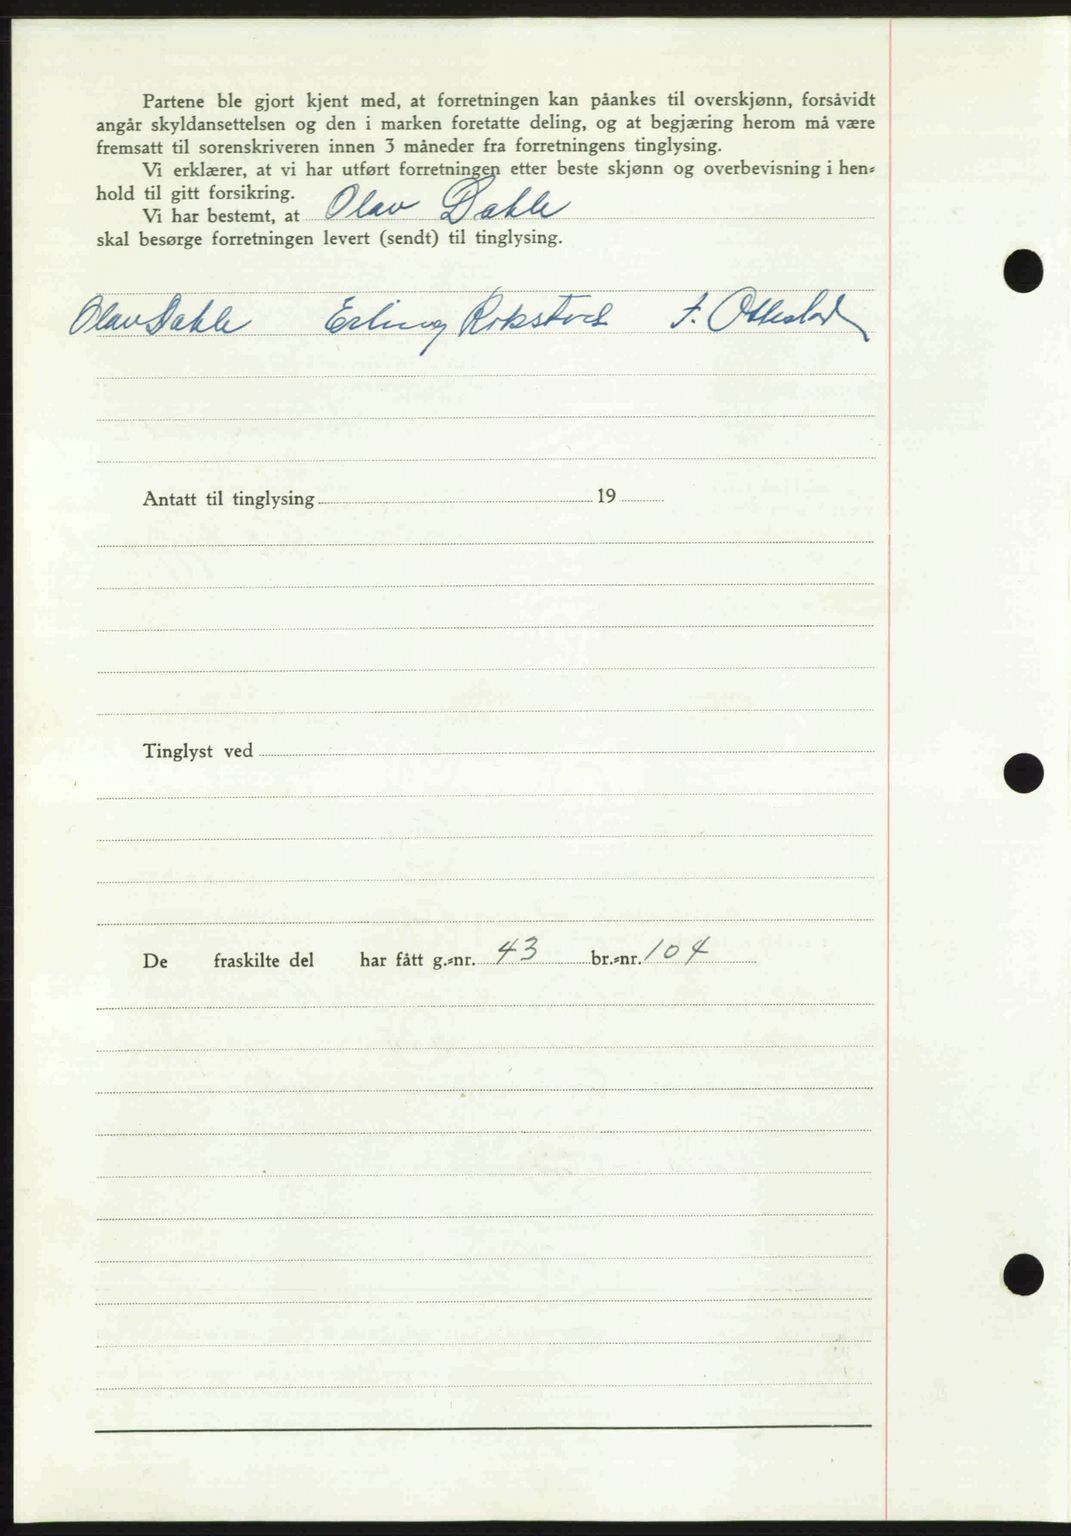 Partene ble gjort kjent med, at forretningen kan påankes til overskjønn, forsåvidt
angår skyldansettelsen og den i marken foretatte deling, og at begjæring herom må være
fremsatt til sorenskriveren innen 3 måneder fra forretningens tinglysing.
Vi erklærer, at vi har utført forretningen etter beste skjønn og overbevisning i hen-
hold til gitt forsikring.
Vi har bestemt, at Olav Dahle
skal besørge forretningen levert (sendt) til tinglysing.
Olav Dahle Erling Rokstad F. Ottestad
Antatt til tinglysing 19
Tinglyst ved
De fraskilte del har fått g.-nr. 43 br.-nr. 104